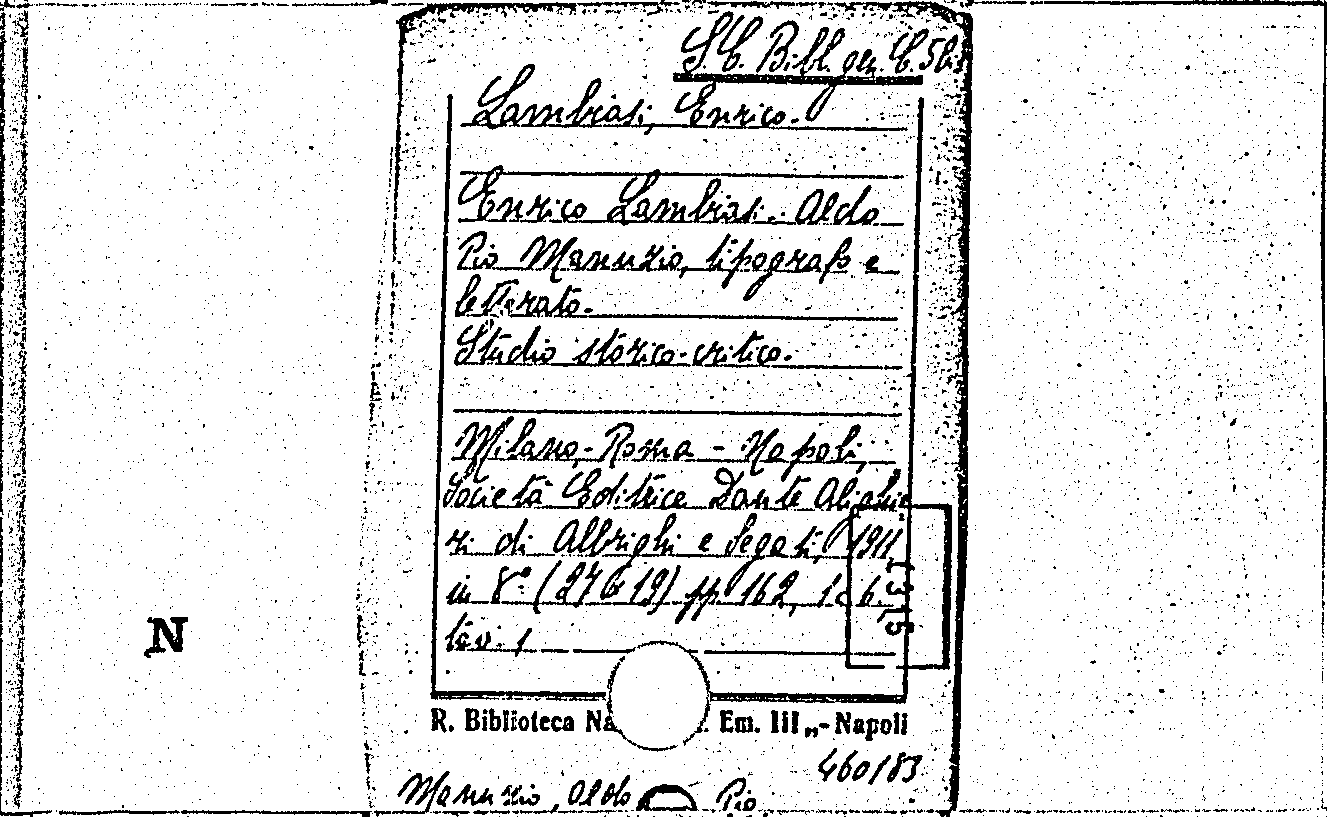 S.C. Bibl. gen. C. 5bis
Lambiasi, Enrico.
Enrico Lambiasi. Aldo
Pio Manuzio, tipografo e
letterato.
Studio storico-critico.
Milano-Roma-Napoli,
Società Editrice Dante Alighie
ri di Albrighi e Segati, 1911,
in 8° (27 19) pp 162, 1 6.
tav. 1
1315
N
R. Biblioteca Na . Em. III „-Napoli
460183
Manuzio, Aldo Pio